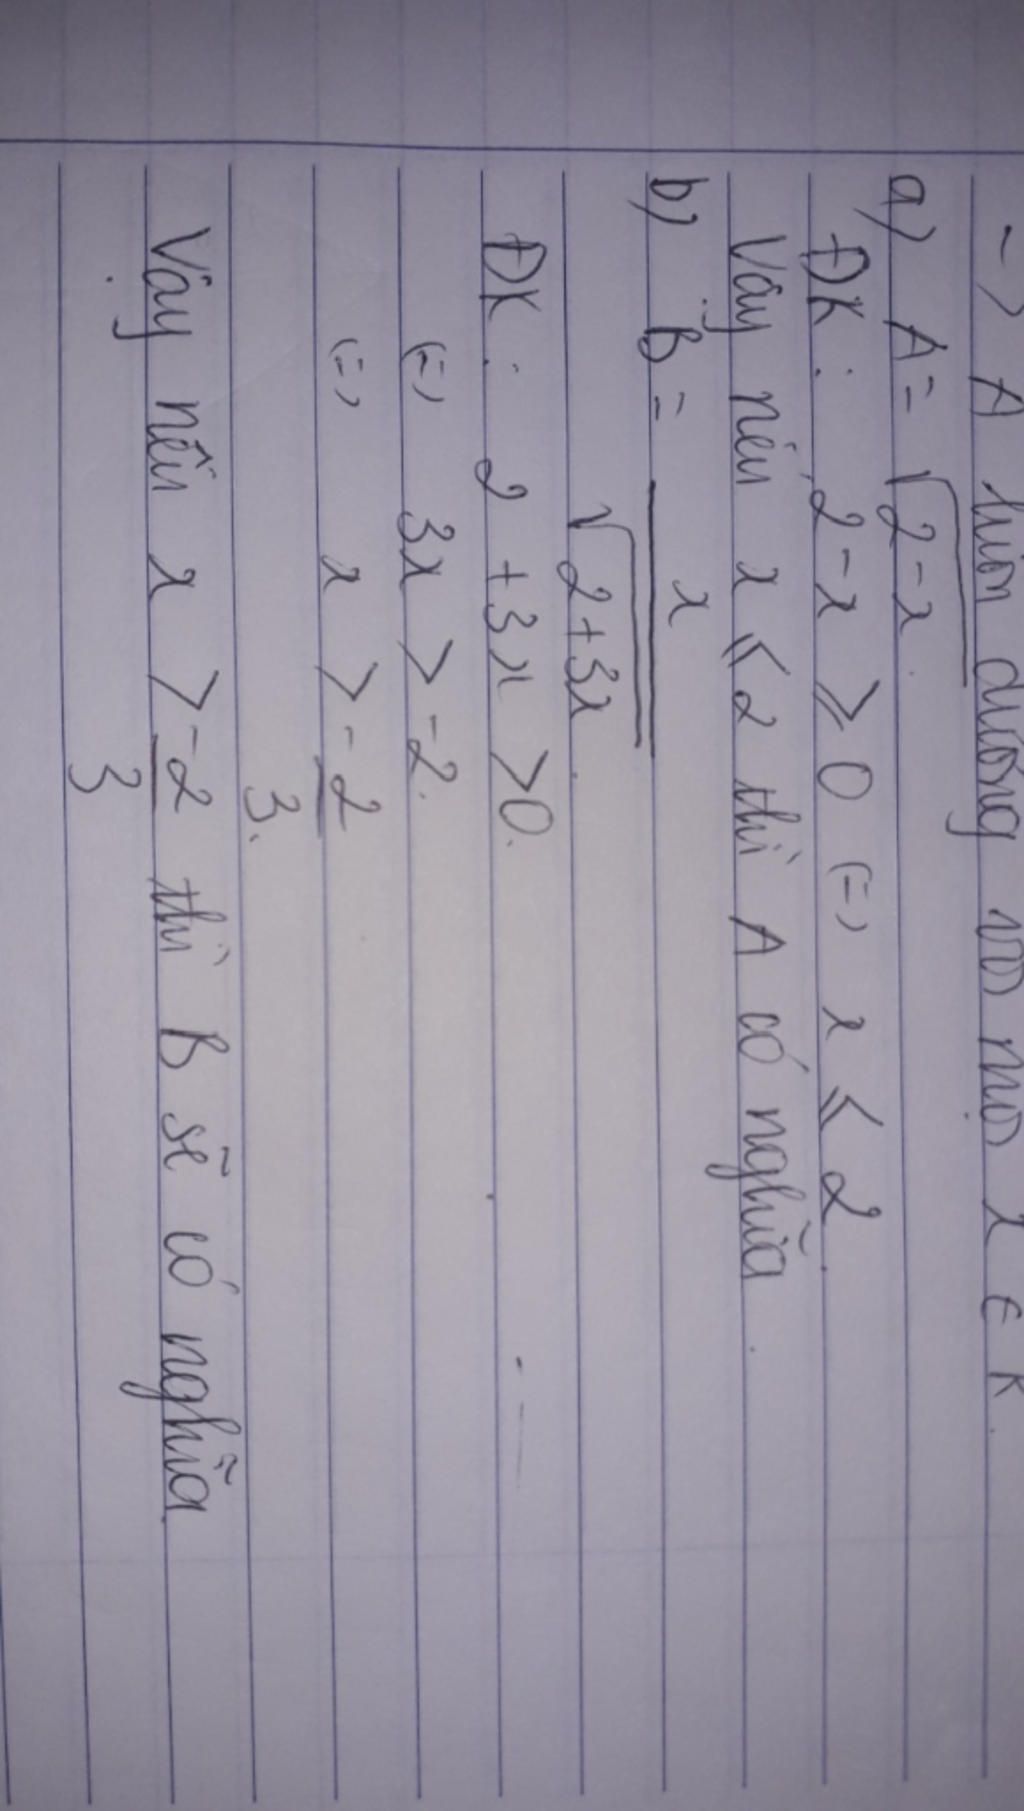 -> A luôn dương với mọi x ∈ R.
a) A = √2-x.
ĐK: 2-x ≥ 0 (=) x ≤ 2.
Vậy nếu x ≤ 2 thì A có nghĩa.
b) B = x
√2+3x.
ĐK: 2 +3x >0.
(=) 3x > -2.
(=) x > -2
3.
Vậy nếu x > -2 thì B sẽ có nghĩa.
3